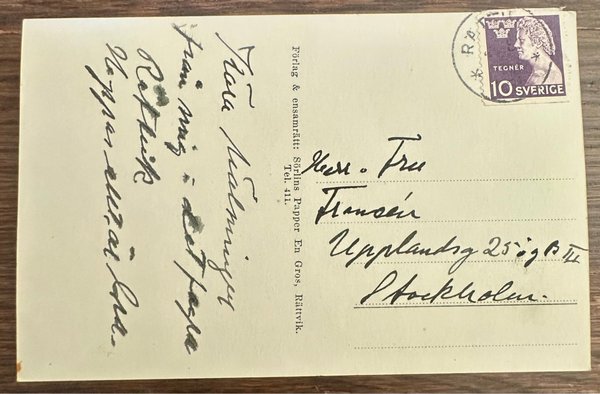 Kära hälsningar
från mig i det fagra
Rättvik
Hoppas allt är bra.
Förlag & ensamrätt: Sörlins Papper En Gros, Rättvik.
Tel. 411.
TEGNÉR
10 SVERIGE
Herr o. Fru
Fransén
Upplandsg 25 ög B III
Stockholm.